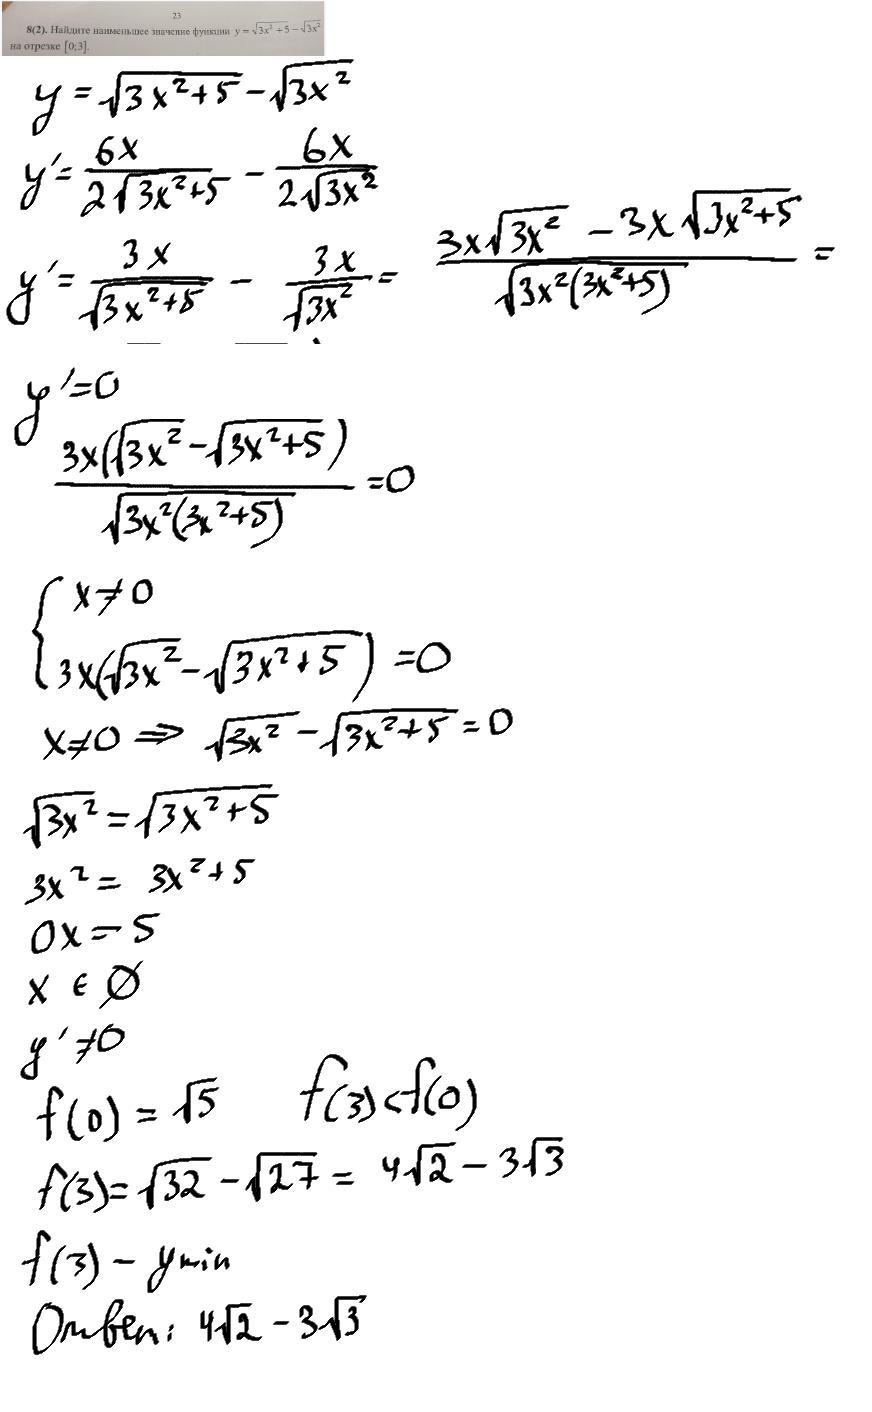 23
8(2). Найдите наименьшее значение функции y = √3x² + 5 − √3x²
на отрезке [0;3].
y = √(3x²+5) − √(3x²)
y' = 6x/(2√(3x²+5)) − 6x/(2√(3x²))
y' = 3x/√(3x²+5) − 3x/√(3x²) = (3x√(3x²) − 3x√(3x²+5))/√(3x²(3x²+5)) =
y' = 0
3x(√(3x²) − √(3x²+5))/√(3x²(3x²+5)) = 0
{ x ≠ 0
3x(√(3x²) − √(3x²+5)) = 0
x ≠ 0 ⇒ √(3x²) − √(3x²+5) = 0
√(3x²) = √(3x²+5)
3x² = 3x²+5
0x = 5
x ∈ ∅
y' ≠ 0
f(0) = √5 f(3) < f(0)
f(3) = √32 − √27 = 4√2 − 3√3
f(3) − y min
Ответ: 4√2 − 3√3